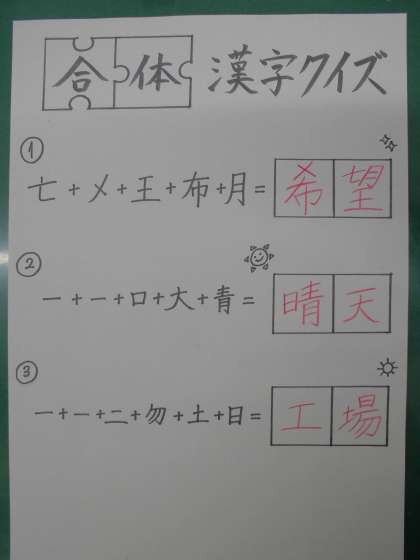 合体漢字クイズ
① 七+メ+王+布+月=希望
② 一+一+口+大+青=晴天
③ 一+一+二+勿+土+日=工場